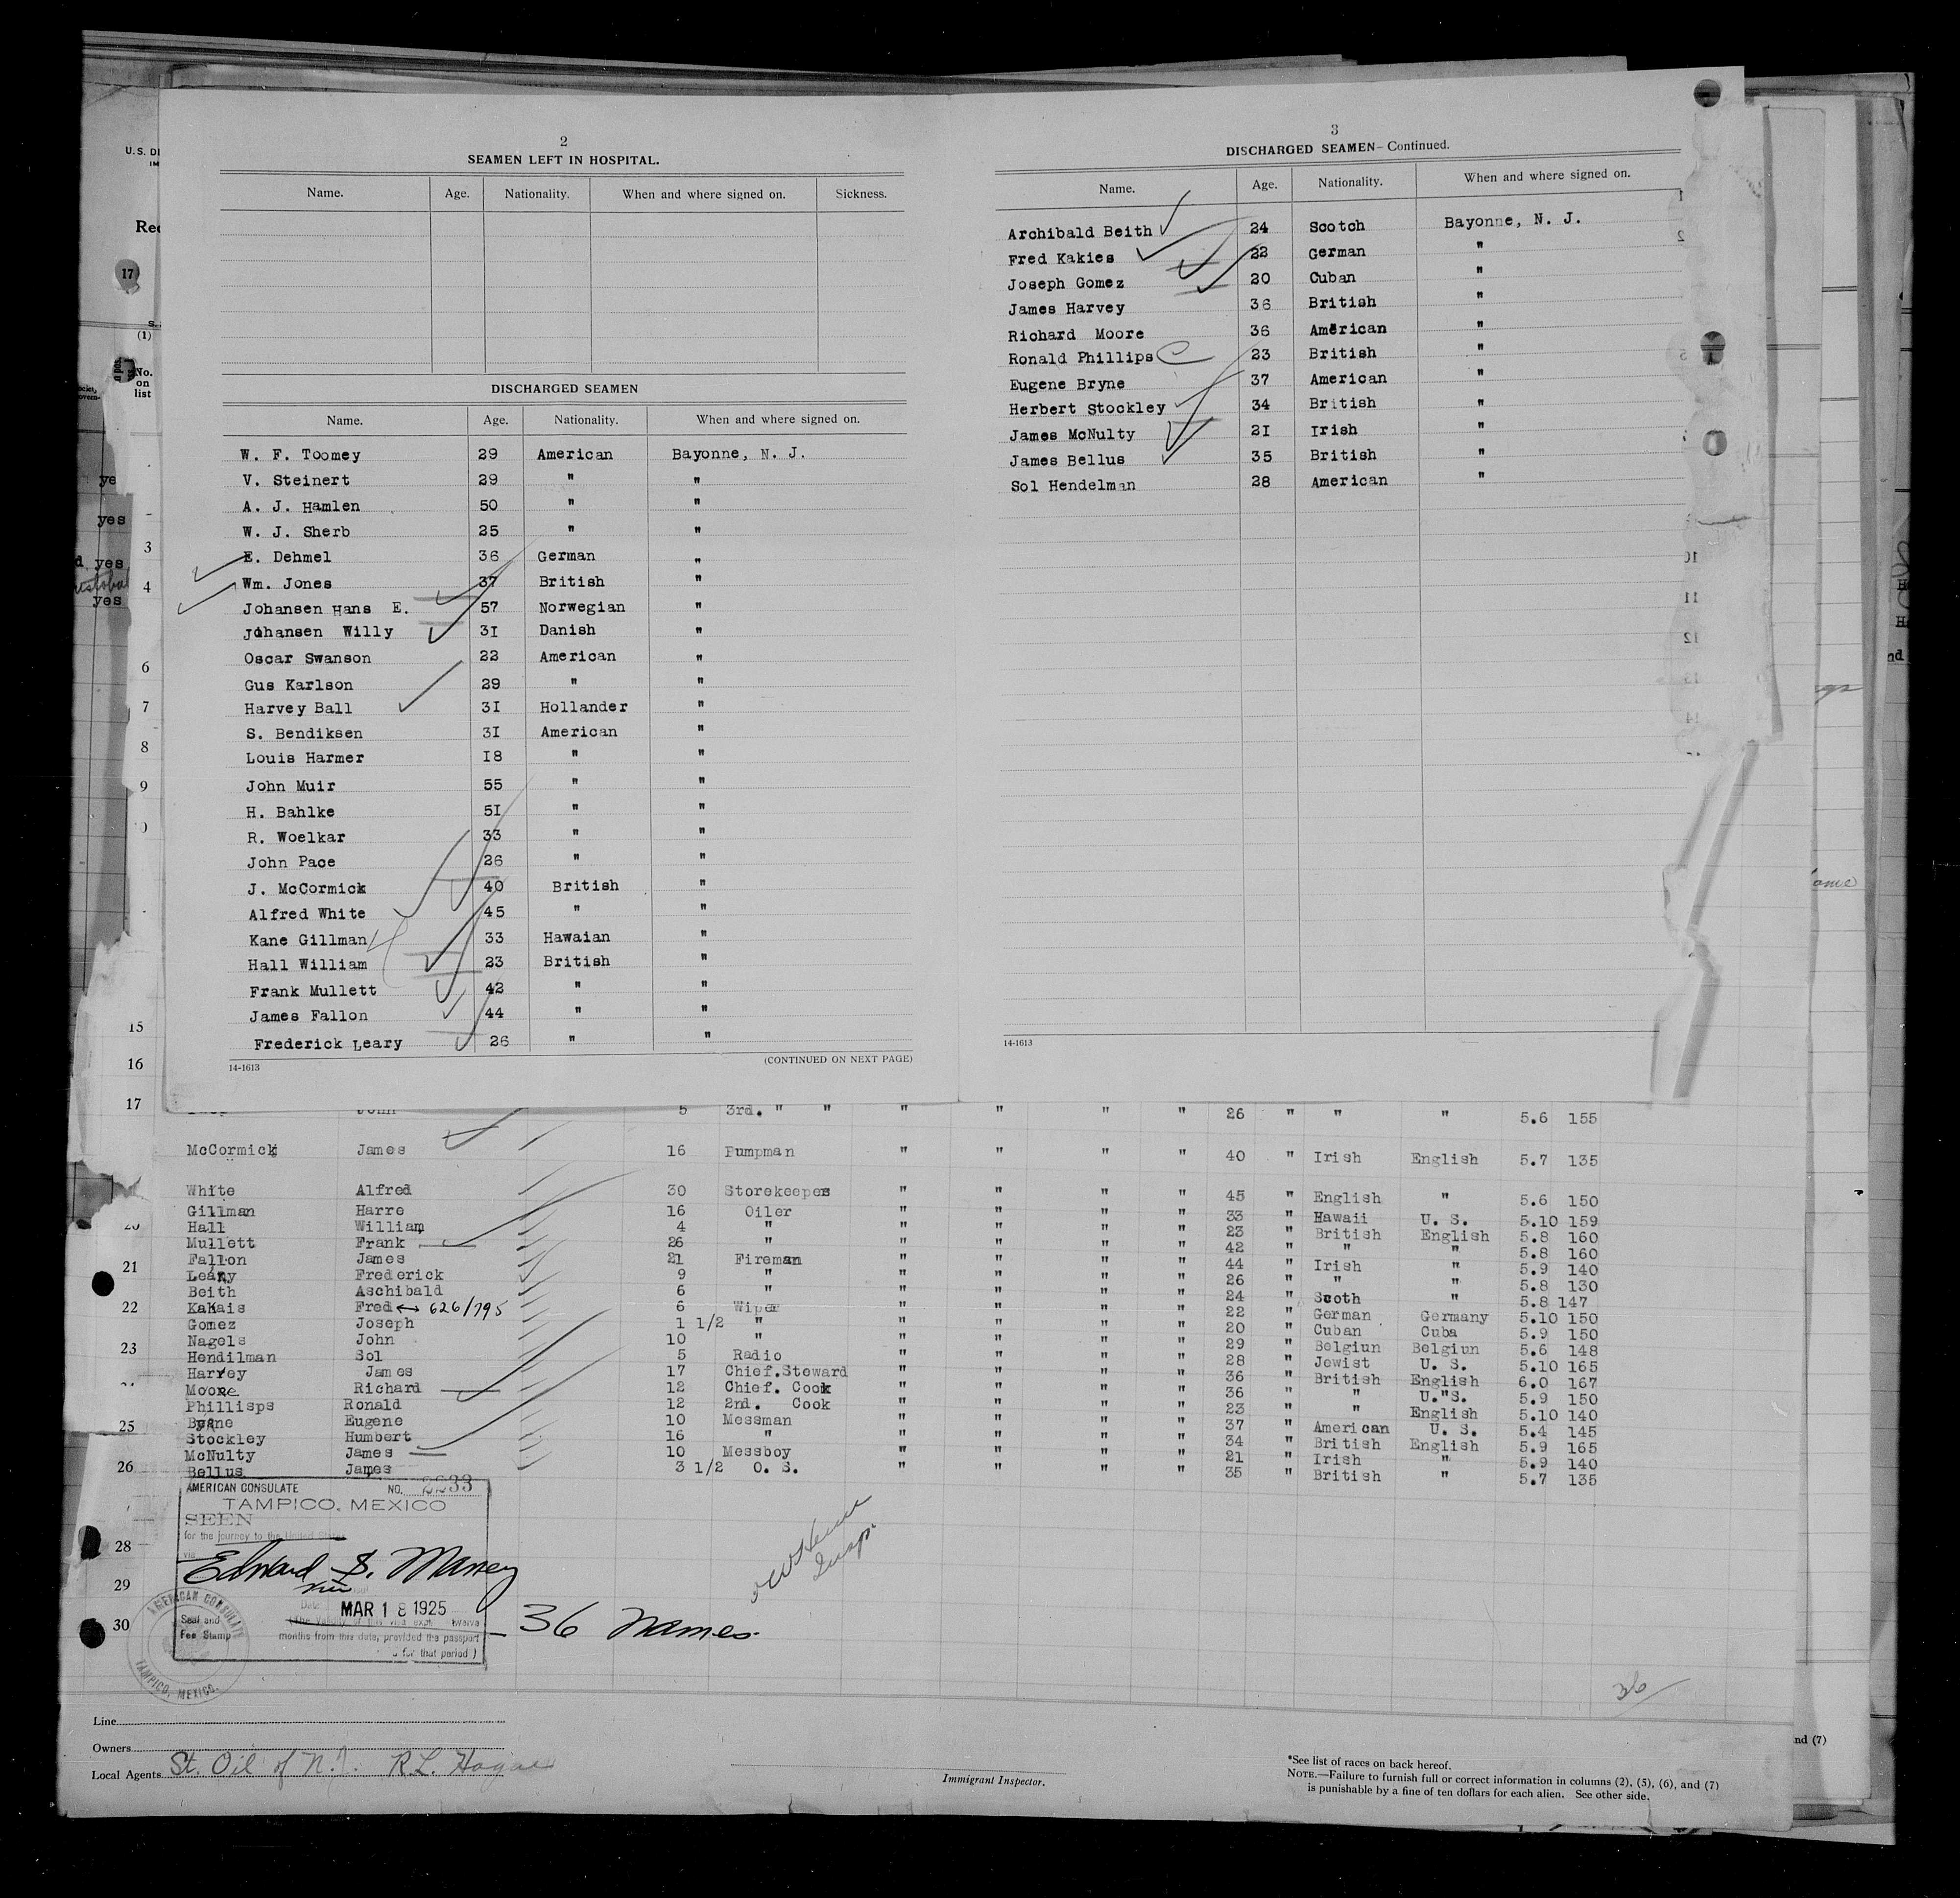 2
SEAMEN LEFT IN HOSPITAL.
Name. Age. Nationality. When and where signed on. Sickness.
DISCHARGED SEAMEN
Name. Age. Nationality. When and where signed on.
W. F. Toomey 29 American Bayonne, N. J.
V. Steinert 29 " "
A. J. Hamlen 50 " "
W. J. Sherb 25 " "
E. Dehmel 36 German "
Wm. Jones 37 British "
Johansen Hans E. 57 Norwegian "
Johansen Willy 31 Danish "
Oscar Swanson 22 American "
Gus Karlson 29 " "
Harvey Ball 31 Hollander "
S. Bendiksen 31 American "
Louis Harmer 18 " "
John Muir 55 " "
H. Bahlke 51 " "
R. Woelkar 33 " "
John Pace 26 " "
J. McCormick 40 British "
Alfred White 45 " "
Kane Gillman 33 Hawaian "
Hall William 23 British "
Frank Mullett 42 " "
James Fallon 44 " "
Frederick Leary 26 " "
14-1613 (CONTINUED ON NEXT PAGE)
3
DISCHARGED SEAMEN—Continued.
Name. Age. Nationality. When and where signed on.
Archibald Beith 24 Scotch Bayonne, N. J.
Fred Kakies 22 German "
Joseph Gomez 20 Cuban "
James Harvey 36 British "
Richard Moore 36 American "
Ronald Phillips 23 British "
Eugene Bryne 37 American "
Herbert Stockley 34 British "
James McNulty 21 Irish "
James Bellus 35 British "
Sol Hendelman 28 American "
14-1613
John 5 3rd. " " " " " " 26 " " " 5.6 155
McCormick James 16 Pumpman " " " " 40 " Irish English 5.7 135
White Alfred 30 Storekeeper " " " " 45 " English " 5.6 150
Gillman Harre 16 Oiler " " " " 33 " Hawaii U. S. 5.10 159
Hall William 4 " " " " " 23 " British English 5.8 160
Mullett Frank 26 " " " " " 42 " " " 5.8 160
Fallon James 21 Fireman " " " " 44 " Irish " 5.9 140
Leary Frederick 9 " " " " " 26 " " " 5.8 130
Beith Aschibald 6 " " " " " 24 " Scoth " 5.8 147
Kakais Fred ↔ 626/795 6 Wiper " " " " 22 " German Germany 5.10 150
Gomez Joseph 1 1/2 " " " " " 20 " Cuban Cuba 5.9 150
Nagels John 10 " " " " " 29 " Belgiun Belgiun 5.6 148
Hendilman Sol 5 Radio " " " " 28 " Jewist U. S. 5.10 165
Harvey James 17 Chief.Steward " " " " 36 " British English 6.0 167
Moore Richard 12 Chief. Cook " " " " 36 " " U. S. 5.9 150
Phillisps Ronald 12 2nd. Cook " " " " 23 " " English 5.10 140
Byrne Eugene 10 Messman " " " " 37 " American U. S. 5.4 145
Stockley Humbert 16 " " " " " 34 " British English 5.9 165
McNulty James 10 Messboy " " " " 21 " Irish " 5.9 140
Bellus James 3 1/2 O. S. " " " " 35 " British " 5.7 135
AMERICAN CONSULATE NO. 2233
TAMPICO, MEXICO
SEEN
for the journey to the United States
via
Edward S. Maney
MAR 18 1925
Seal and
Fee Stamp
months from this date, provided the passport
for that period )
AMERICAN CONSULATE
TAMPICO, MEXICO.
36 names
36
Line
Owners
Local Agents St. Oil of N.J. R.L. Hague
Immigrant Inspector.
*See list of races on back hereof.
NOTE.—Failure to furnish full or correct information in columns (2), (5), (6), and (7)
is punishable by a fine of ten dollars for each alien. See other side.
U. S. D
IM
Rec
17
(1)
No.
on
list
yes
yes
yes
yes
3
4
6
7
8
9
15
16
17
21
22
23
25
26
28
29
30
nd (7)